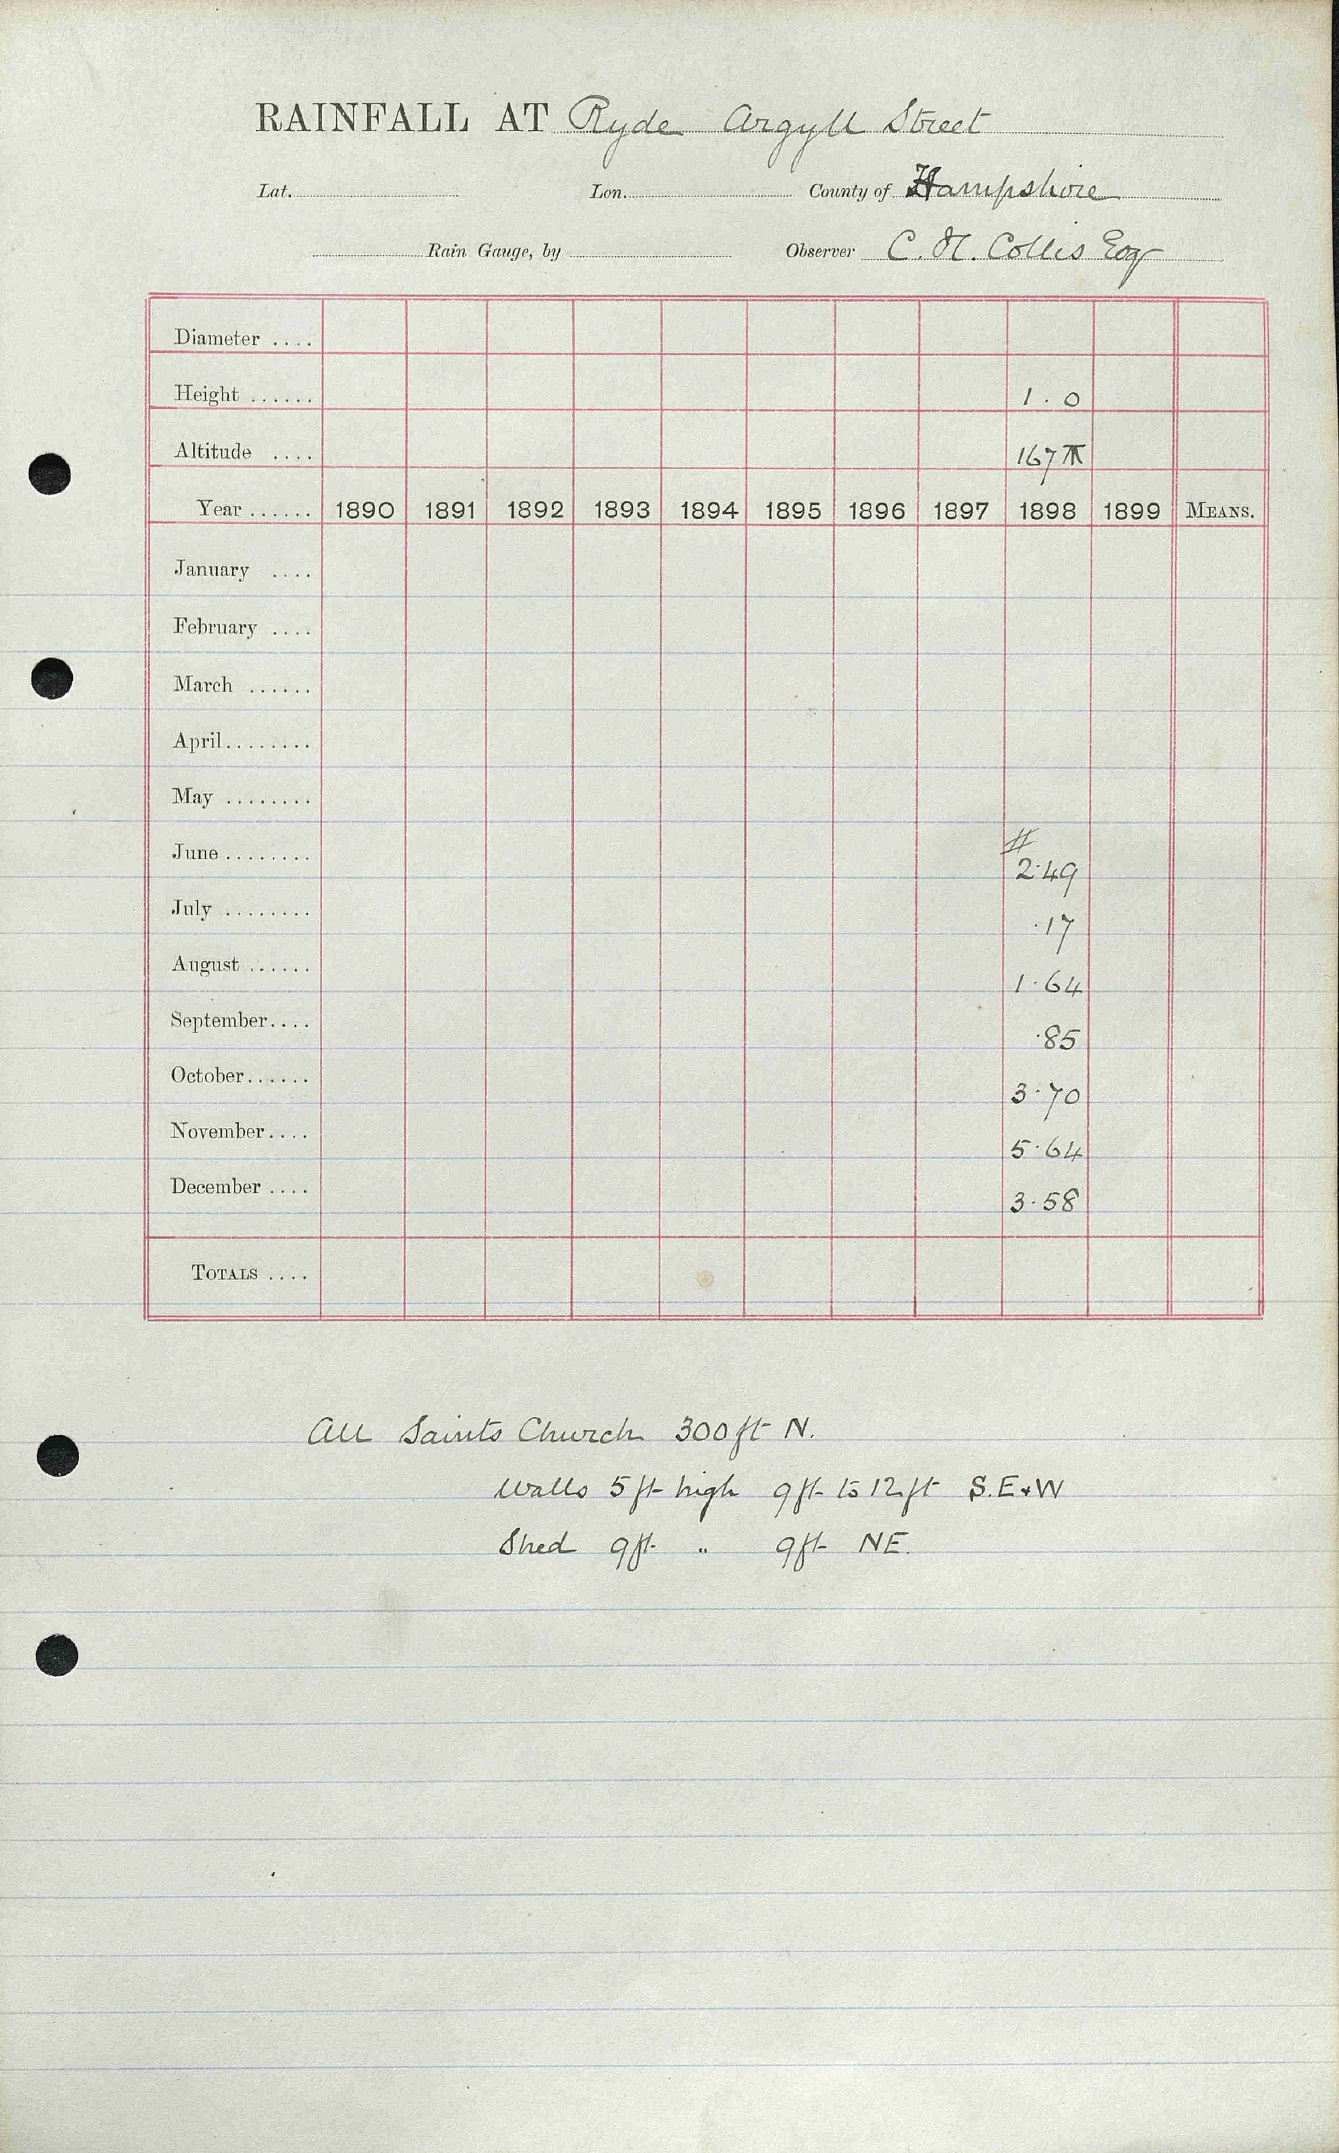 RAINFALL AT Ryde Argyll Street
Lat. Lon. County of Hampshire
Rain Gauge, by Observer C. H. Collis Esq
Diameter ....
Height ...... 1.0
Altitude .... 167
Year ...... 1890 1891 1892 1893 1894 1895 1896 1897 1898 1899 MEANS.
January ....
February ....
March ......
April........
May ........
June ........ #
2.49
July ........ .17
August ...... 1.64
September.... .85
October...... 3.70
November.... 5.64
December .... 3.58
TOTALS ....
All Saints Church 300ft N.
Walls 5ft high 9ft to 12ft S.E+W
Shed 9ft " 9ft NE.